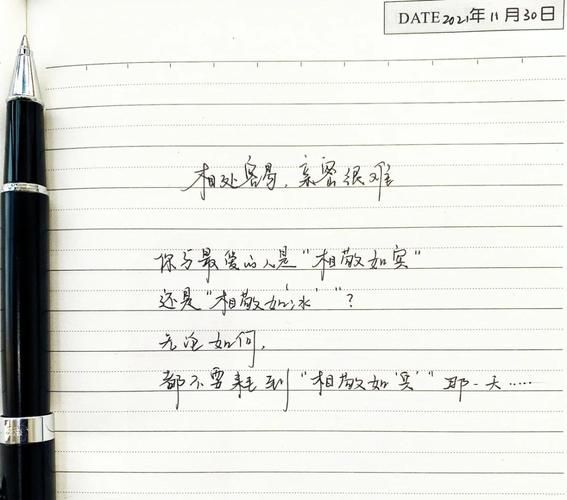 DATE 2021年11月30日
相处容易，亲密很难
你与最爱的人是“相敬如宾”
还是“相敬如‘冰’”？
无论如何，
都不要耗到“相敬如‘冥’”那一天……